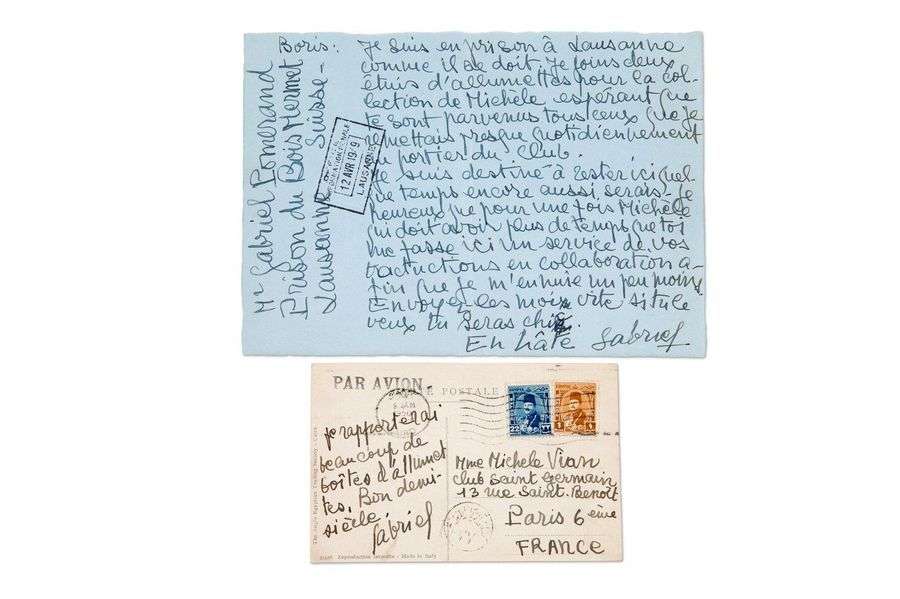 Mr Gabriel Pomerand
Prison du Bois Mermet
Lausanne Suisse
Boris:
Je suis en prison à Lausanne
comme il se doit. Je joins deux
étuis d'allumettes pour la col-
lection de Michèle espérant que
te sont parvenus tous ceux que je
remettais presque quotidiennement
au portier du Club.
Je suis destiné à rester ici quel
que temps encore aussi serais-je
heureux que pour une fois Michèle
qui doit avoir plus de temps que toi
me fasse ici un service de vos
traductions en collaboration a-
fin que je m'ennuie un peu moins
Envoyez les moi vite si tu le
veux tu seras chic.
En hâte Gabriel
12 AVR 1949
LAUSANNE
PAR AVION.
POSTALE
22
1
Je rapporterai
beaucoup de
boîtes d'allumet
tes. Bon demi-
siècle.
Gabriel
Mme Michele Vian
Club Saint Germain
13 rue Saint. Benoît
Paris 6ème
FRANCE
The Anglo Egyptian Trading Society - Cairo
Reproduction interdite - Made in Italy